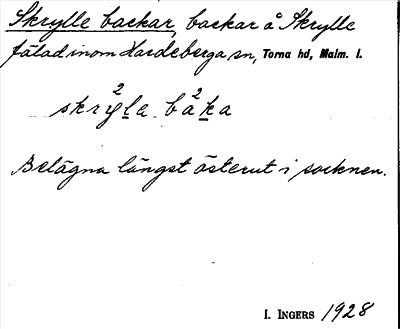 Skrylle backar, backar å Skrylle
fälad inom Hardeberga sn, Torna hd, Malm. l.
2 2
skryle baka
Belägna längst österut i socknen.
I. INGERS 1928